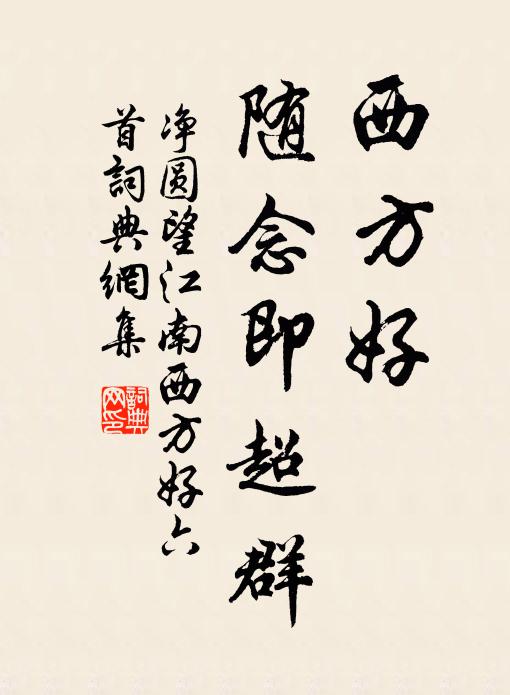 西方好
随念即超群
净圆望江南西方好六
首詞典網集
詞典
网印